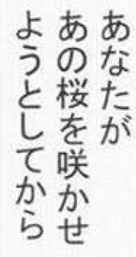 あなたが
あの桜を咲かせ
ようとしてから